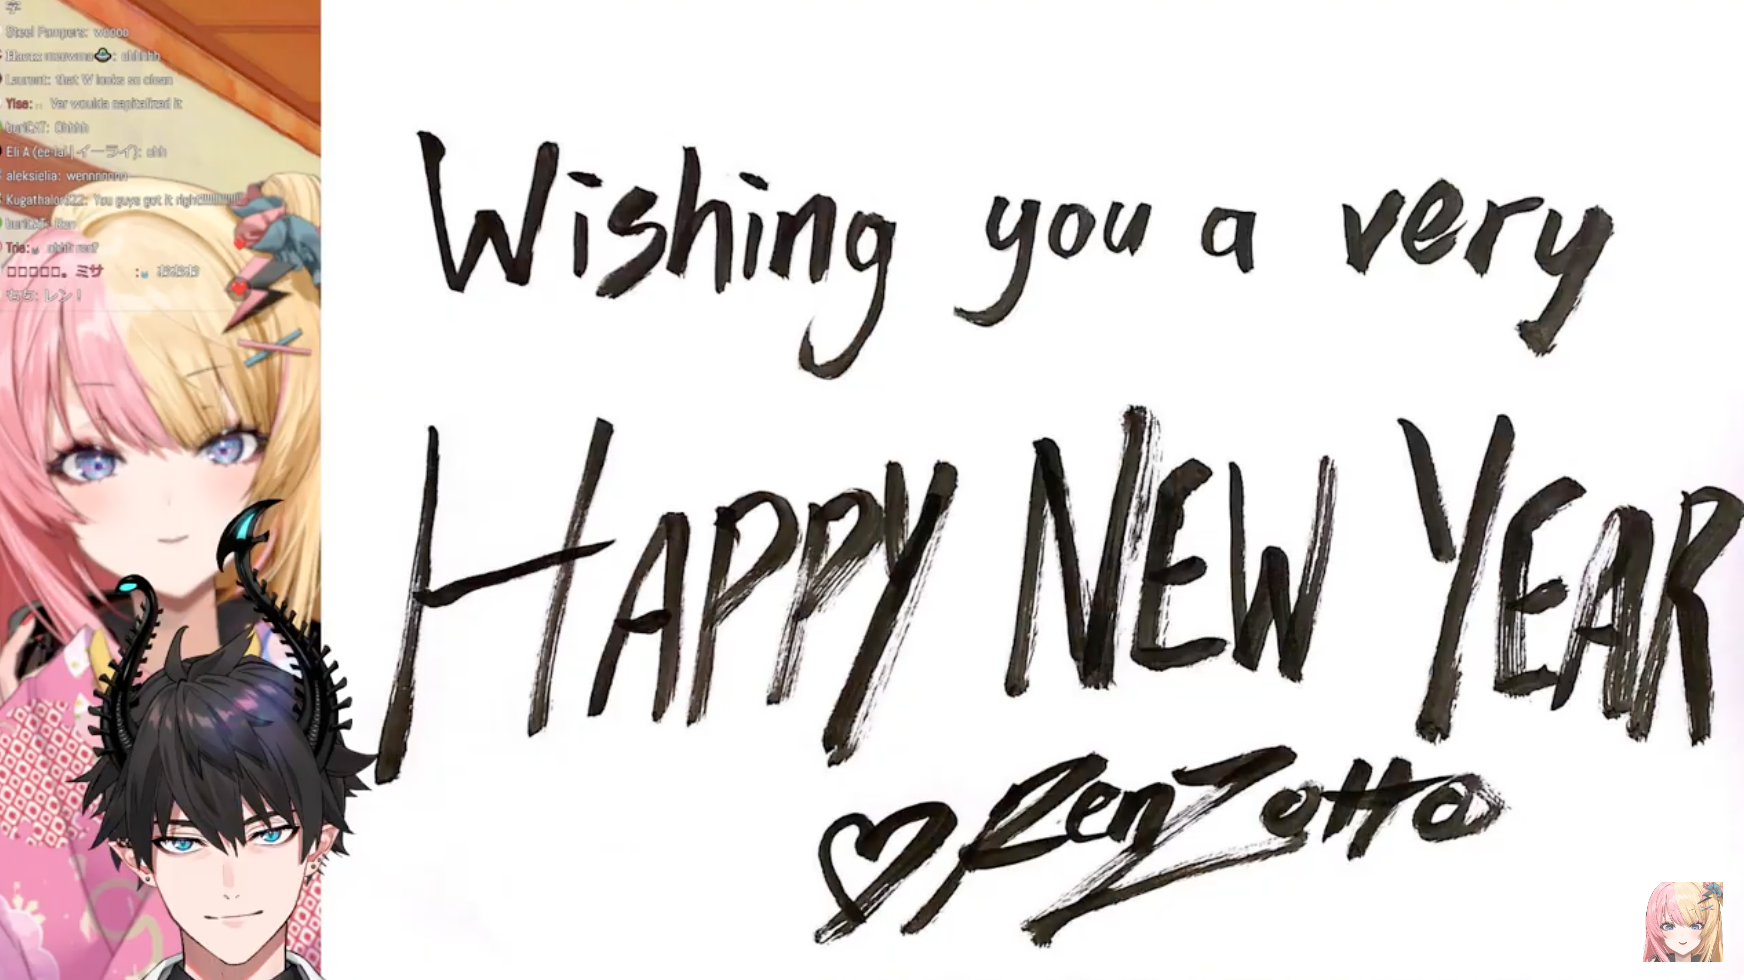 字
Steel Pampers: woooo
ohhhhh
Laurent: that W looks so clean
Yise: Ver woulda capitalized it
Ohhhh
Eli A (ee-lai | イーライ): ohh
aleksielia: wennnnnnn
You guys got it right!!!!!!!!!!!!
Ren
Trie: ohhh ren?
ミサ :
レン！
Wishing you a very
HAPPY NEW YEAR
♡ Ren Zotto